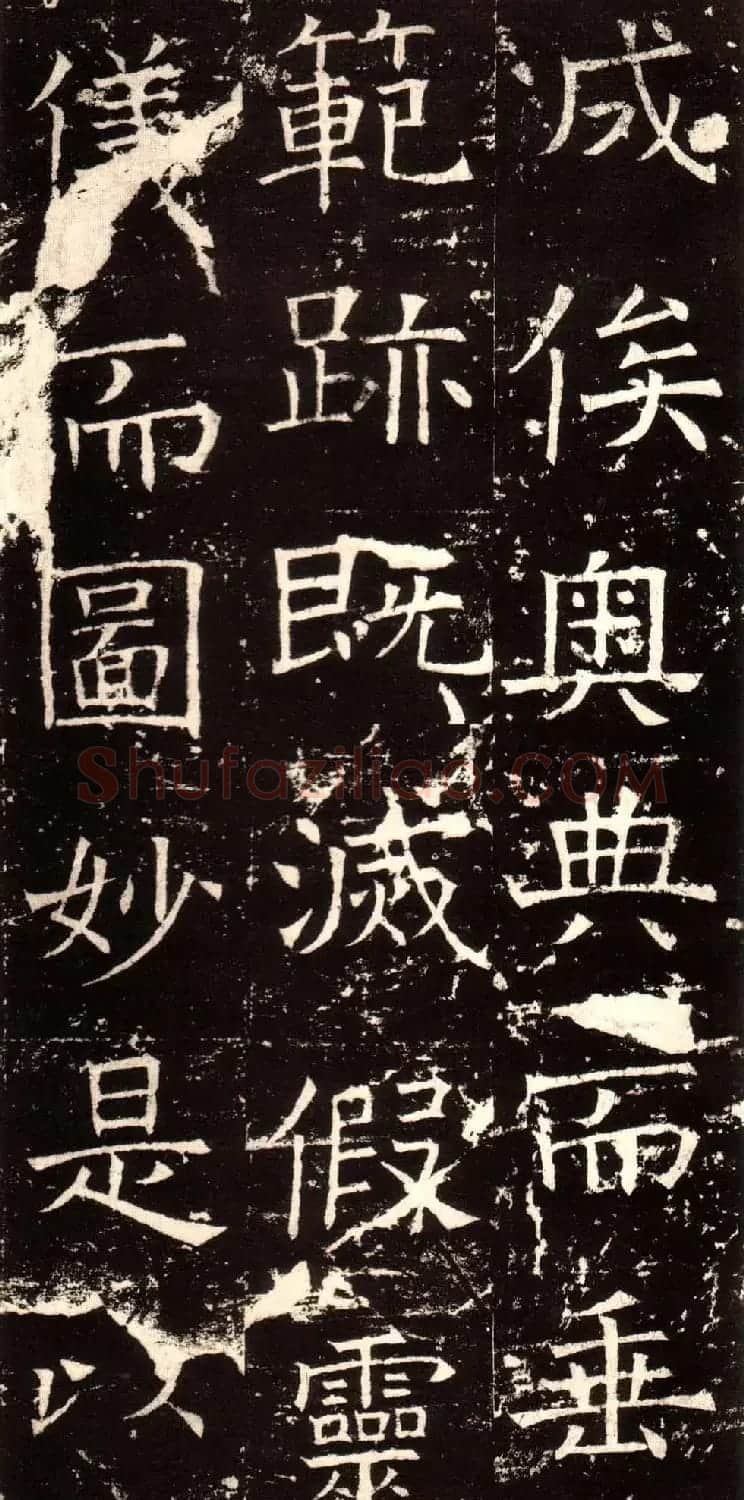 成俟奧典而垂
範跡既滅假靈
儀而圖妙是以
Shufaziliao.COM